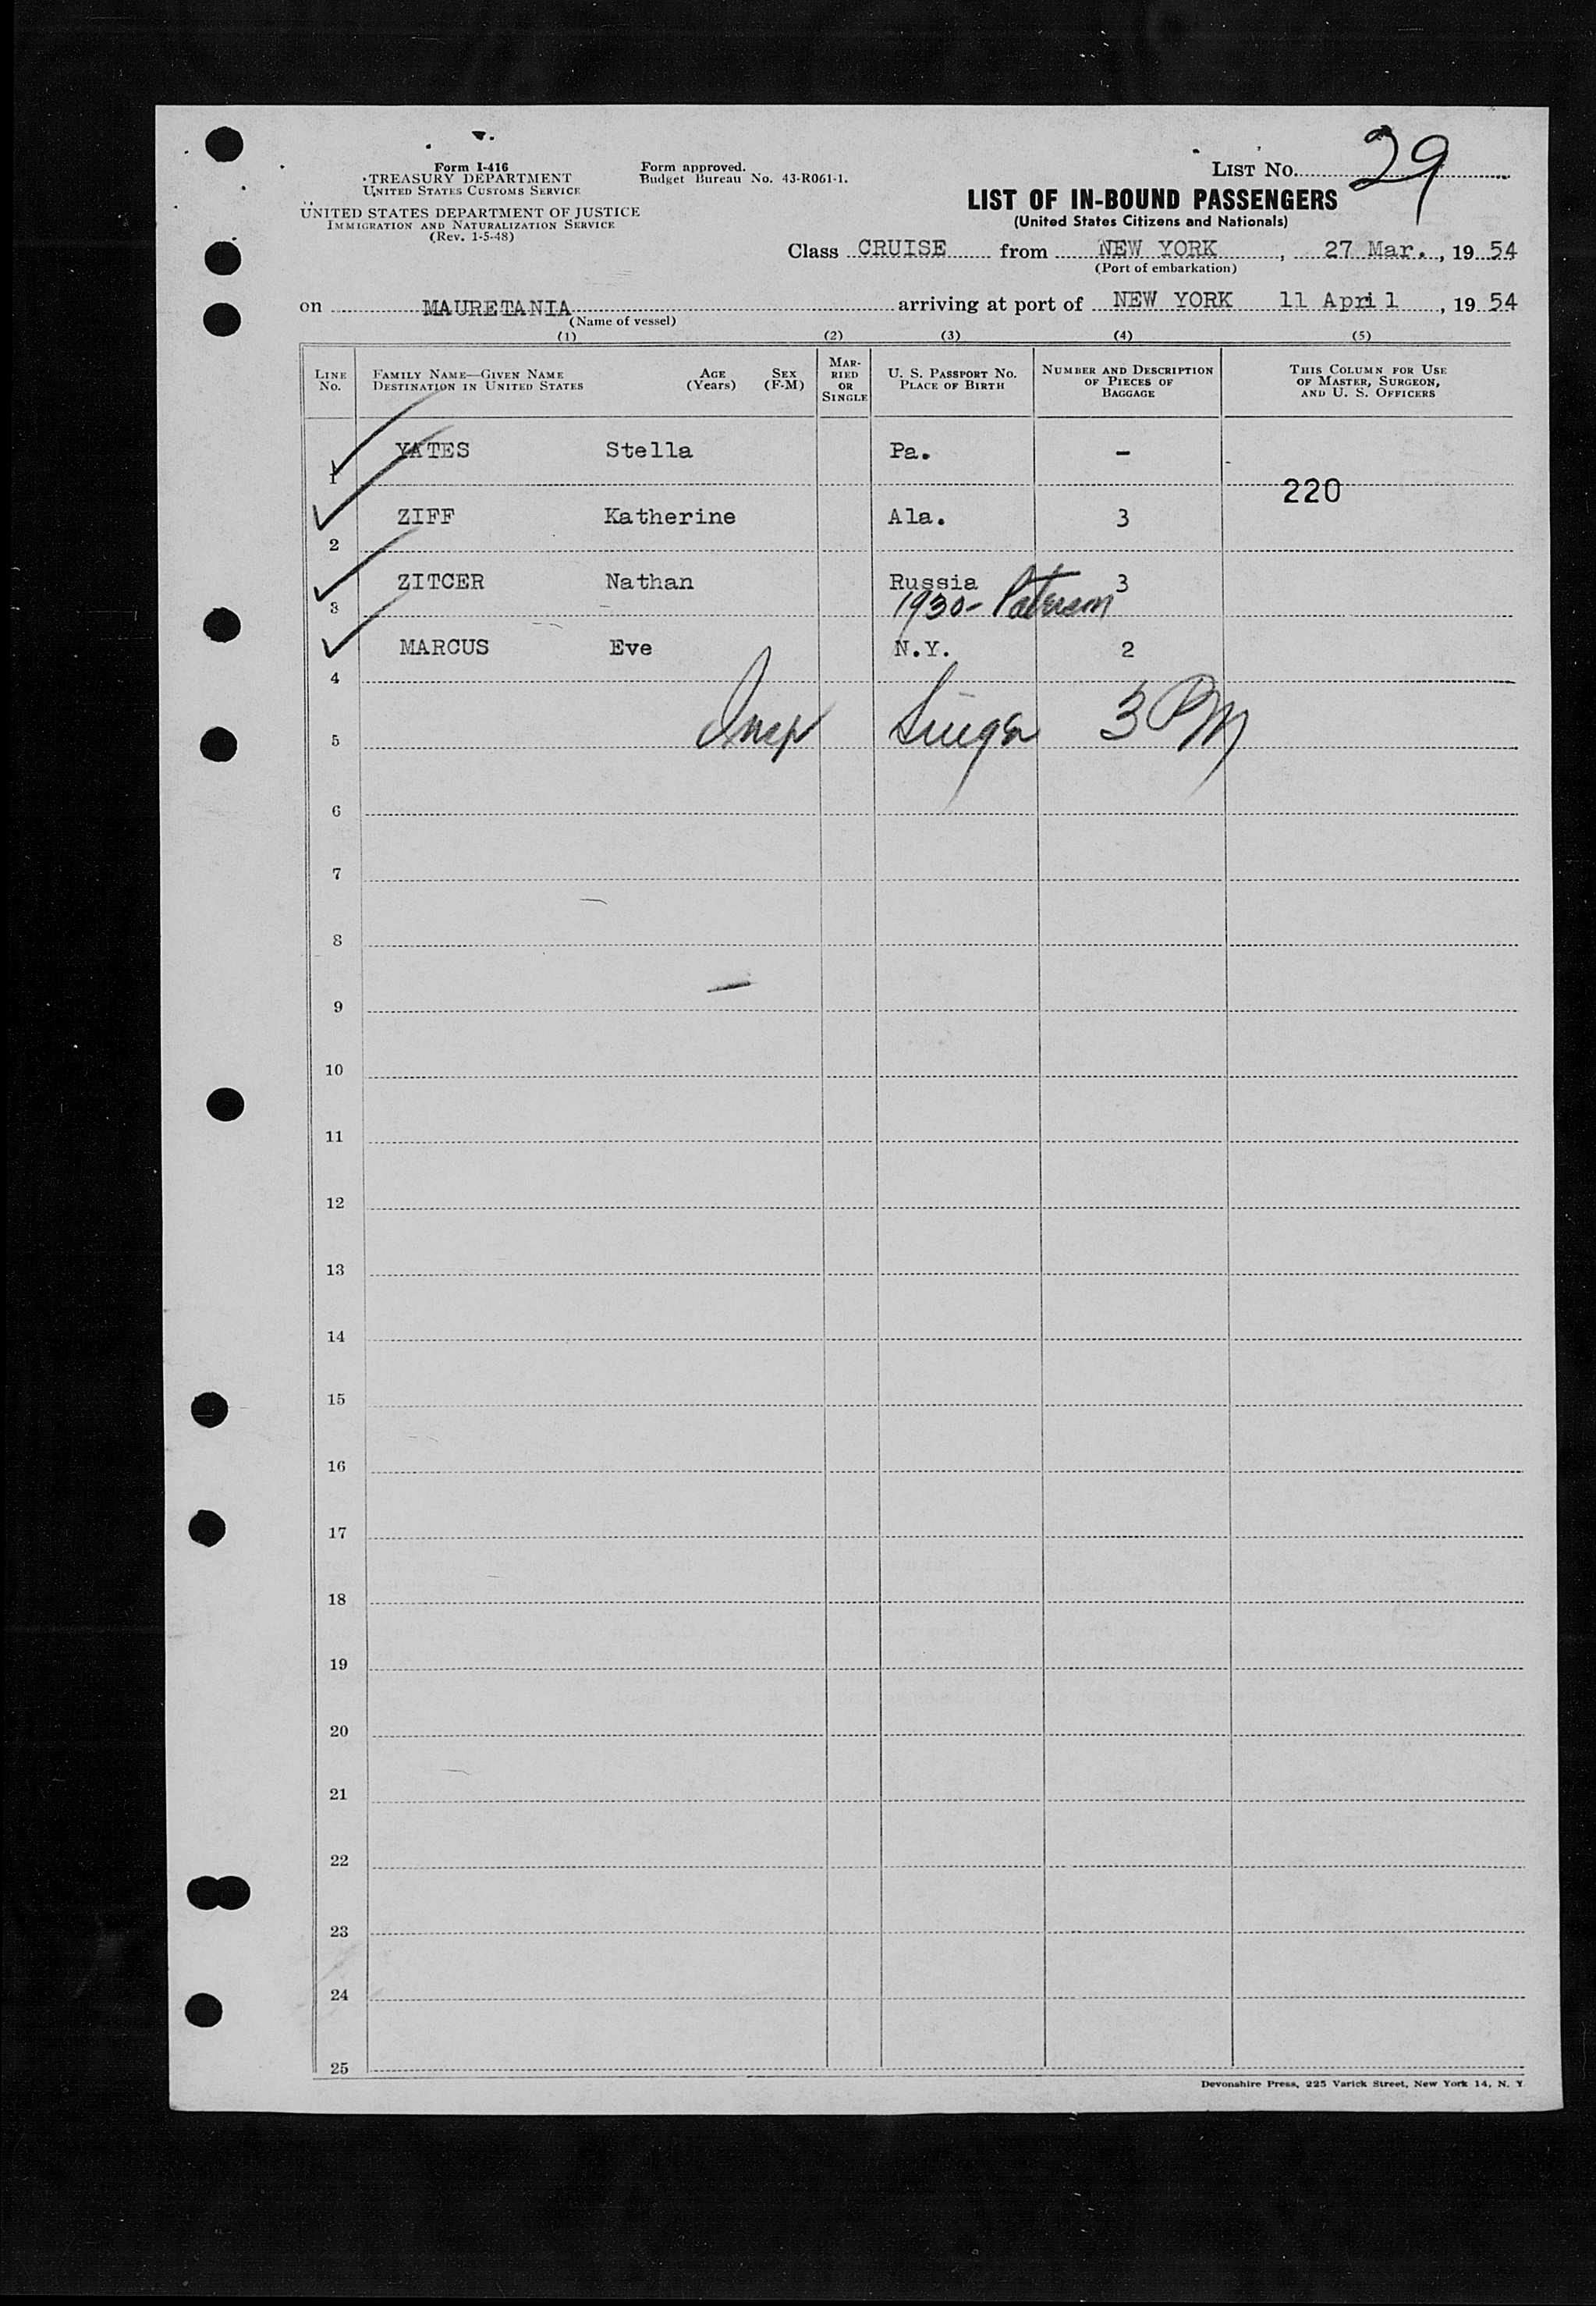 Form I-416
TREASURY DEPARTMENT
UNITED STATES CUSTOMS SERVICE
UNITED STATES DEPARTMENT OF JUSTICE
IMMIGRATION AND NATURALIZATION SERVICE
(Rev. 1-5-48)
Form approved.
Budget Bureau No. 43-R061-1.
LIST No. 29
LIST OF IN-BOUND PASSENGERS
(United States Citizens and Nationals)
Class CRUISE from NEW YORK, 27 Mar., 1954
(Port of embarkation)
on MAURETANIA arriving at port of NEW YORK 11 April, 1954
(Name of vessel)
(1) (2) (3) (4) (5)
LINE No. FAMILY NAME—GIVEN NAME DESTINATION IN UNITED STATES AGE (Years) SEX (F-M) MARRIED OR SINGLE U. S. PASSPORT No. PLACE OF BIRTH NUMBER AND DESCRIPTION OF PIECES OF BAGGAGE THIS COLUMN FOR USE OF MASTER, SURGEON, AND U. S. OFFICERS
1 YATES Stella Pa. -
220
2 ZIFF Katherine Ala. 3
3 ZITCER Nathan Russia 3
1930- Paterson
4 MARCUS Eve N.Y. 2
5 Insp Singer 3 PM
6
7
8
9
10
11
12
13
14
15
16
17
18
19
20
21
22
23
24
25
Devonshire Press, 225 Varick Street, New York 14, N. Y.